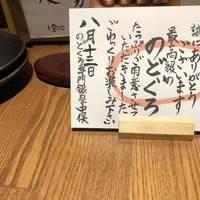 誠にありがとう
ございます
最高級の
のどぐろ
たっぷり用意させて
いただきました
ごゆっくりお楽しみ下さい
八月十三日
のどぐろ専門銀座中俣
1800